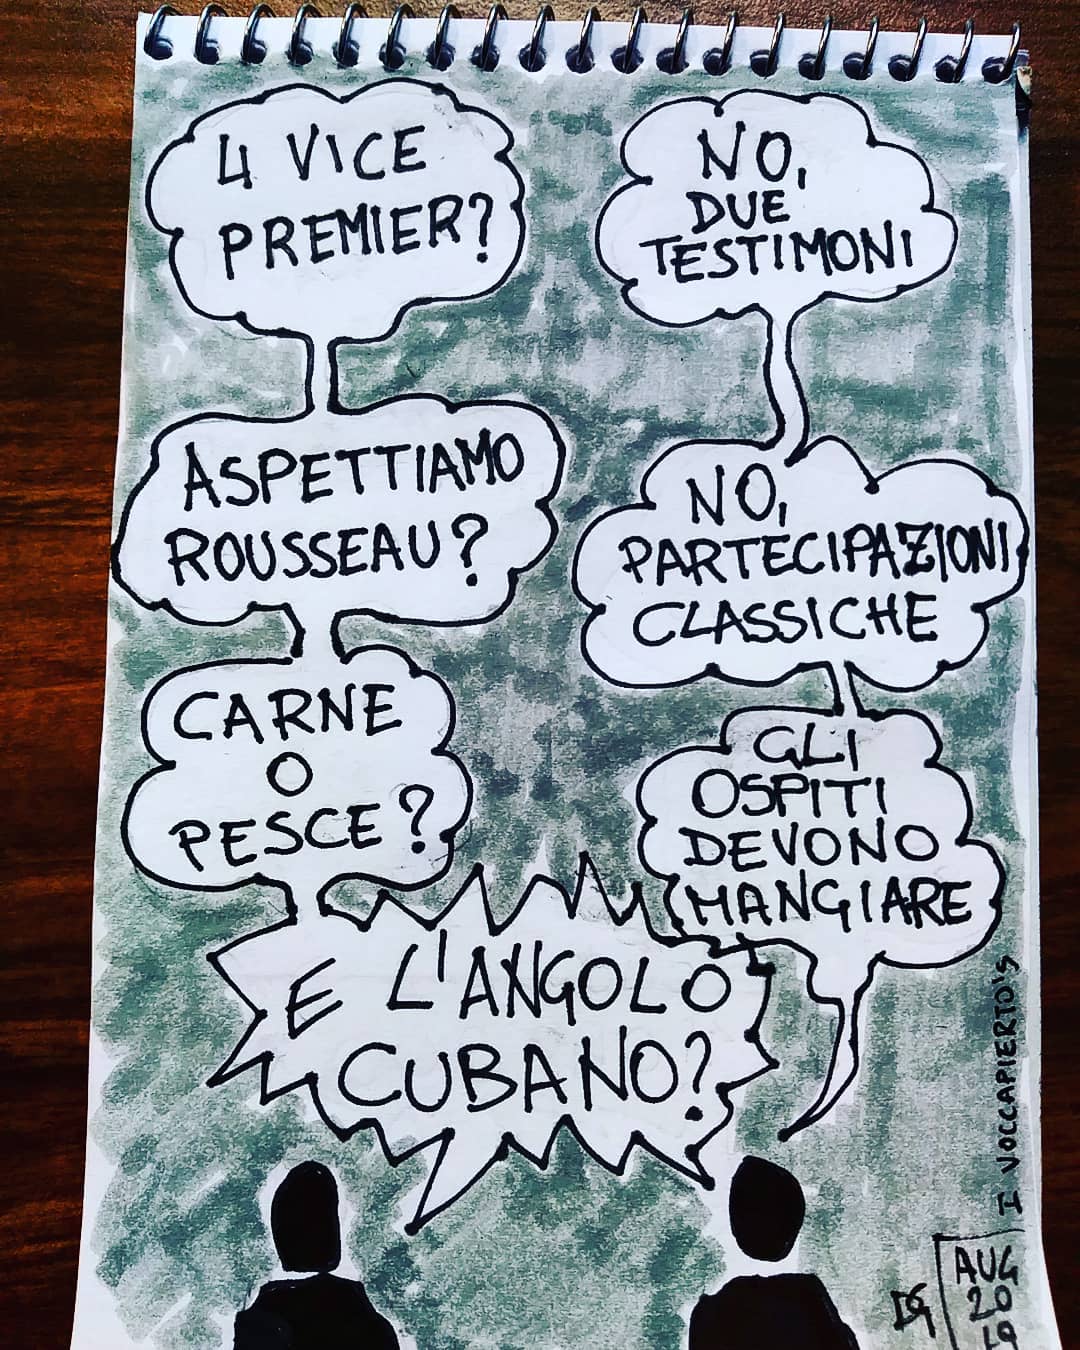 4 VICE
PREMIER?
NO,
DUE
TESTIMONI
ASPETTIAMO
ROUSSEAU?
NO,
PARTECIPAZIONI
CLASSICHE
CARNE
O
PESCE?
GLI
OSPITI
DEVONO
MANGIARE
E L'ANGOLO
CUBANO?
I VOCCAPIERTO'S
DG
AUG
20
19